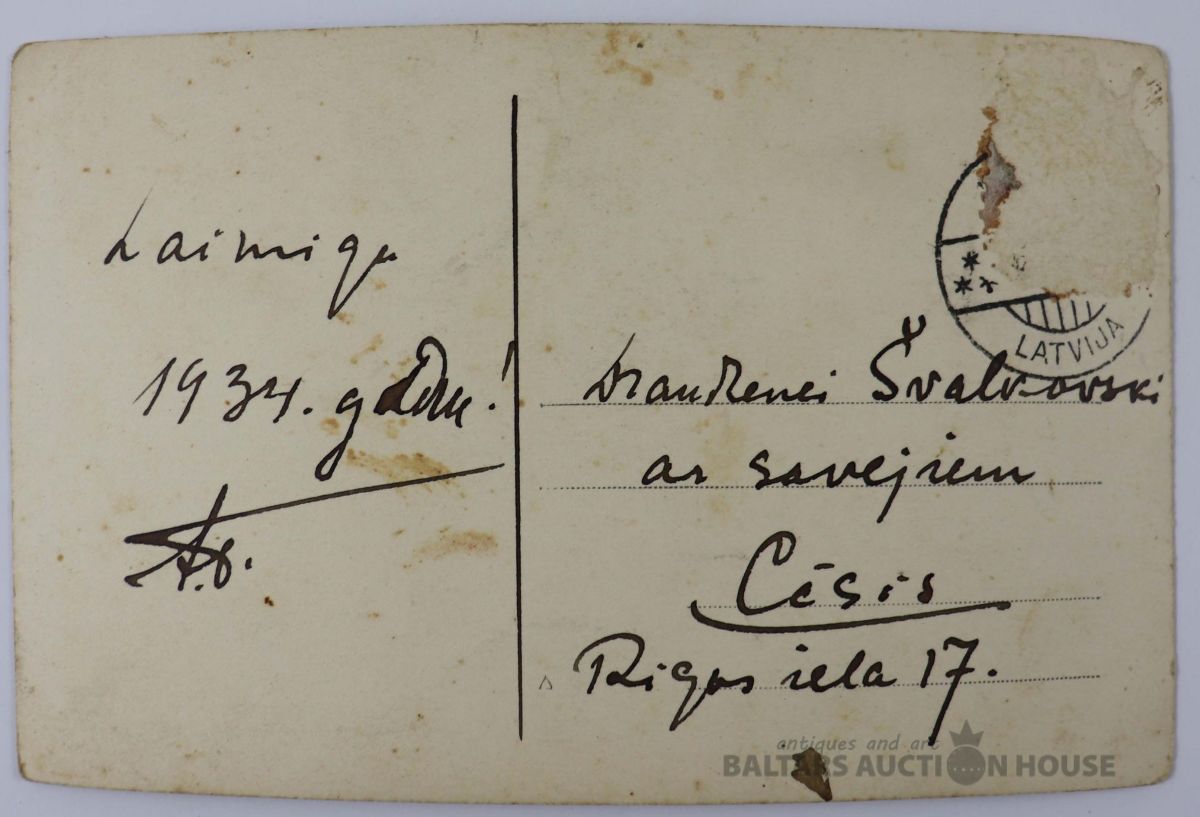 Laimigu
1934. gadu!
A.S.
LATVIJA
Draudzenei Švalkovski
ar savējiem
Cēsis
Rīgas iela 17.
antiques and art
BALTARS AUCTION HOUSE